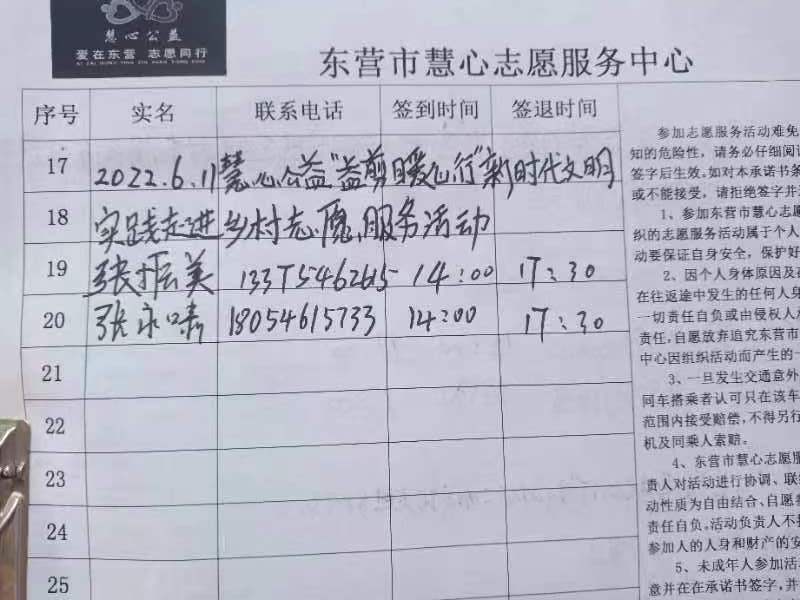 慧心公益
爱在东营 志愿同行
东营市慧心志愿服务中心
序号 实名 联系电话 签到时间 签退时间
17 2022.6.11慧心公益"益剪暖心行"新时代文明
18 实践走进乡村志愿服务活动
19 张振美 13375462615 14:00 17:30
20 张永 18054615733 14:00 17:30
21
22
23
24
25
参加志愿服务活动难免
知的危险性，请务必仔细阅读
签字后生效，如对本承诺书条
或不能接受，请拒绝签字并
1、参加东营市慧心志愿
织的志愿服务活动属于个人
动要保证自身安全，保护好
2、因个人身体原因及
在往返途中发生的任何人身
一切责任自负或由侵权人
责任，自愿放弃追究东营市
中心因组织活动而产生的一
3、一旦发生交通意外
同车搭乘者认可只在该车
范围内接受赔偿，不得另行
机及同乘人索赔。
4、东营市慧心志愿服
责人对活动进行协调、联
动性质为自由结合、自愿
责任自负，活动负责人不
参加人的人身和财产的安
5、未成年人参加活
意并在在承诺书签字，并